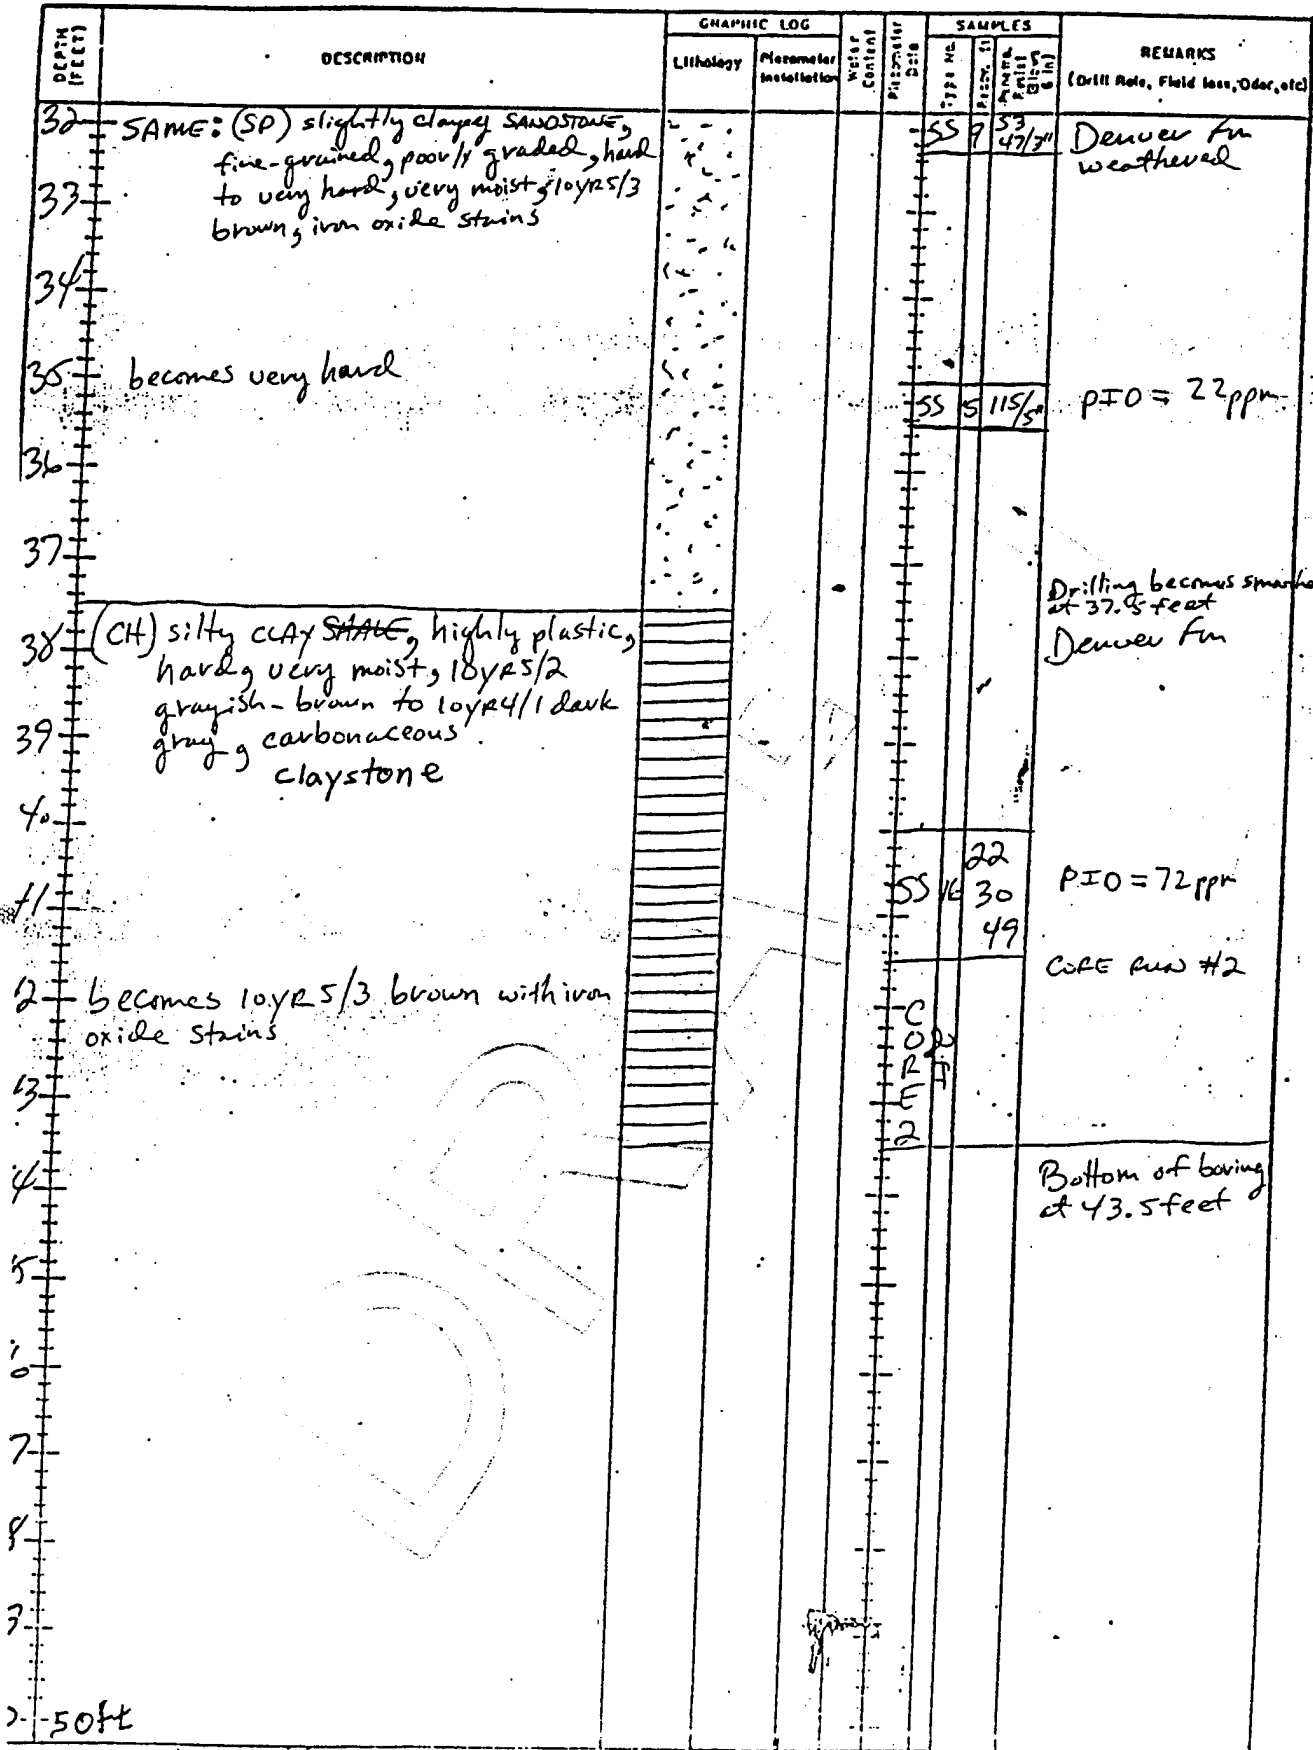 DEPTH (FEET)
DESCRIPTION
GRAPHIC LOG
Lithology
Piezometer Installation
Water Content
Piezometer Data
SAMPLES
Type No.
REMARKS
(Drill Rate, Fluid loss, Odor, etc)
32
SAME: (SP) slightly clayey SANDSTONE,
fine-grained, poorly graded, hard
to very hard, very moist, 10YR5/3
brown, iron oxide stains
SS 9 53
47/3"
Denver Fm
weathered
33
34
35
becomes very hard
SS 5 115/5"
PID = 22ppm
36
37
Drilling becomes
at 37.5 feet
Denver Fm
38
(CH) silty CLAY SHALE, highly plastic,
hard, very moist, 10YR5/2
grayish-brown to 10YR4/1 dark
gray, carbonaceous
claystone
39
40
22
SS 16 30
49
PID = 72ppm
41
CORE RUN #2
2
becomes 10YR5/3 brown with iron
oxide stains
CORE 2
3
Bottom of boring
at 43.5 feet
4
5
7
50ft
DRAFT